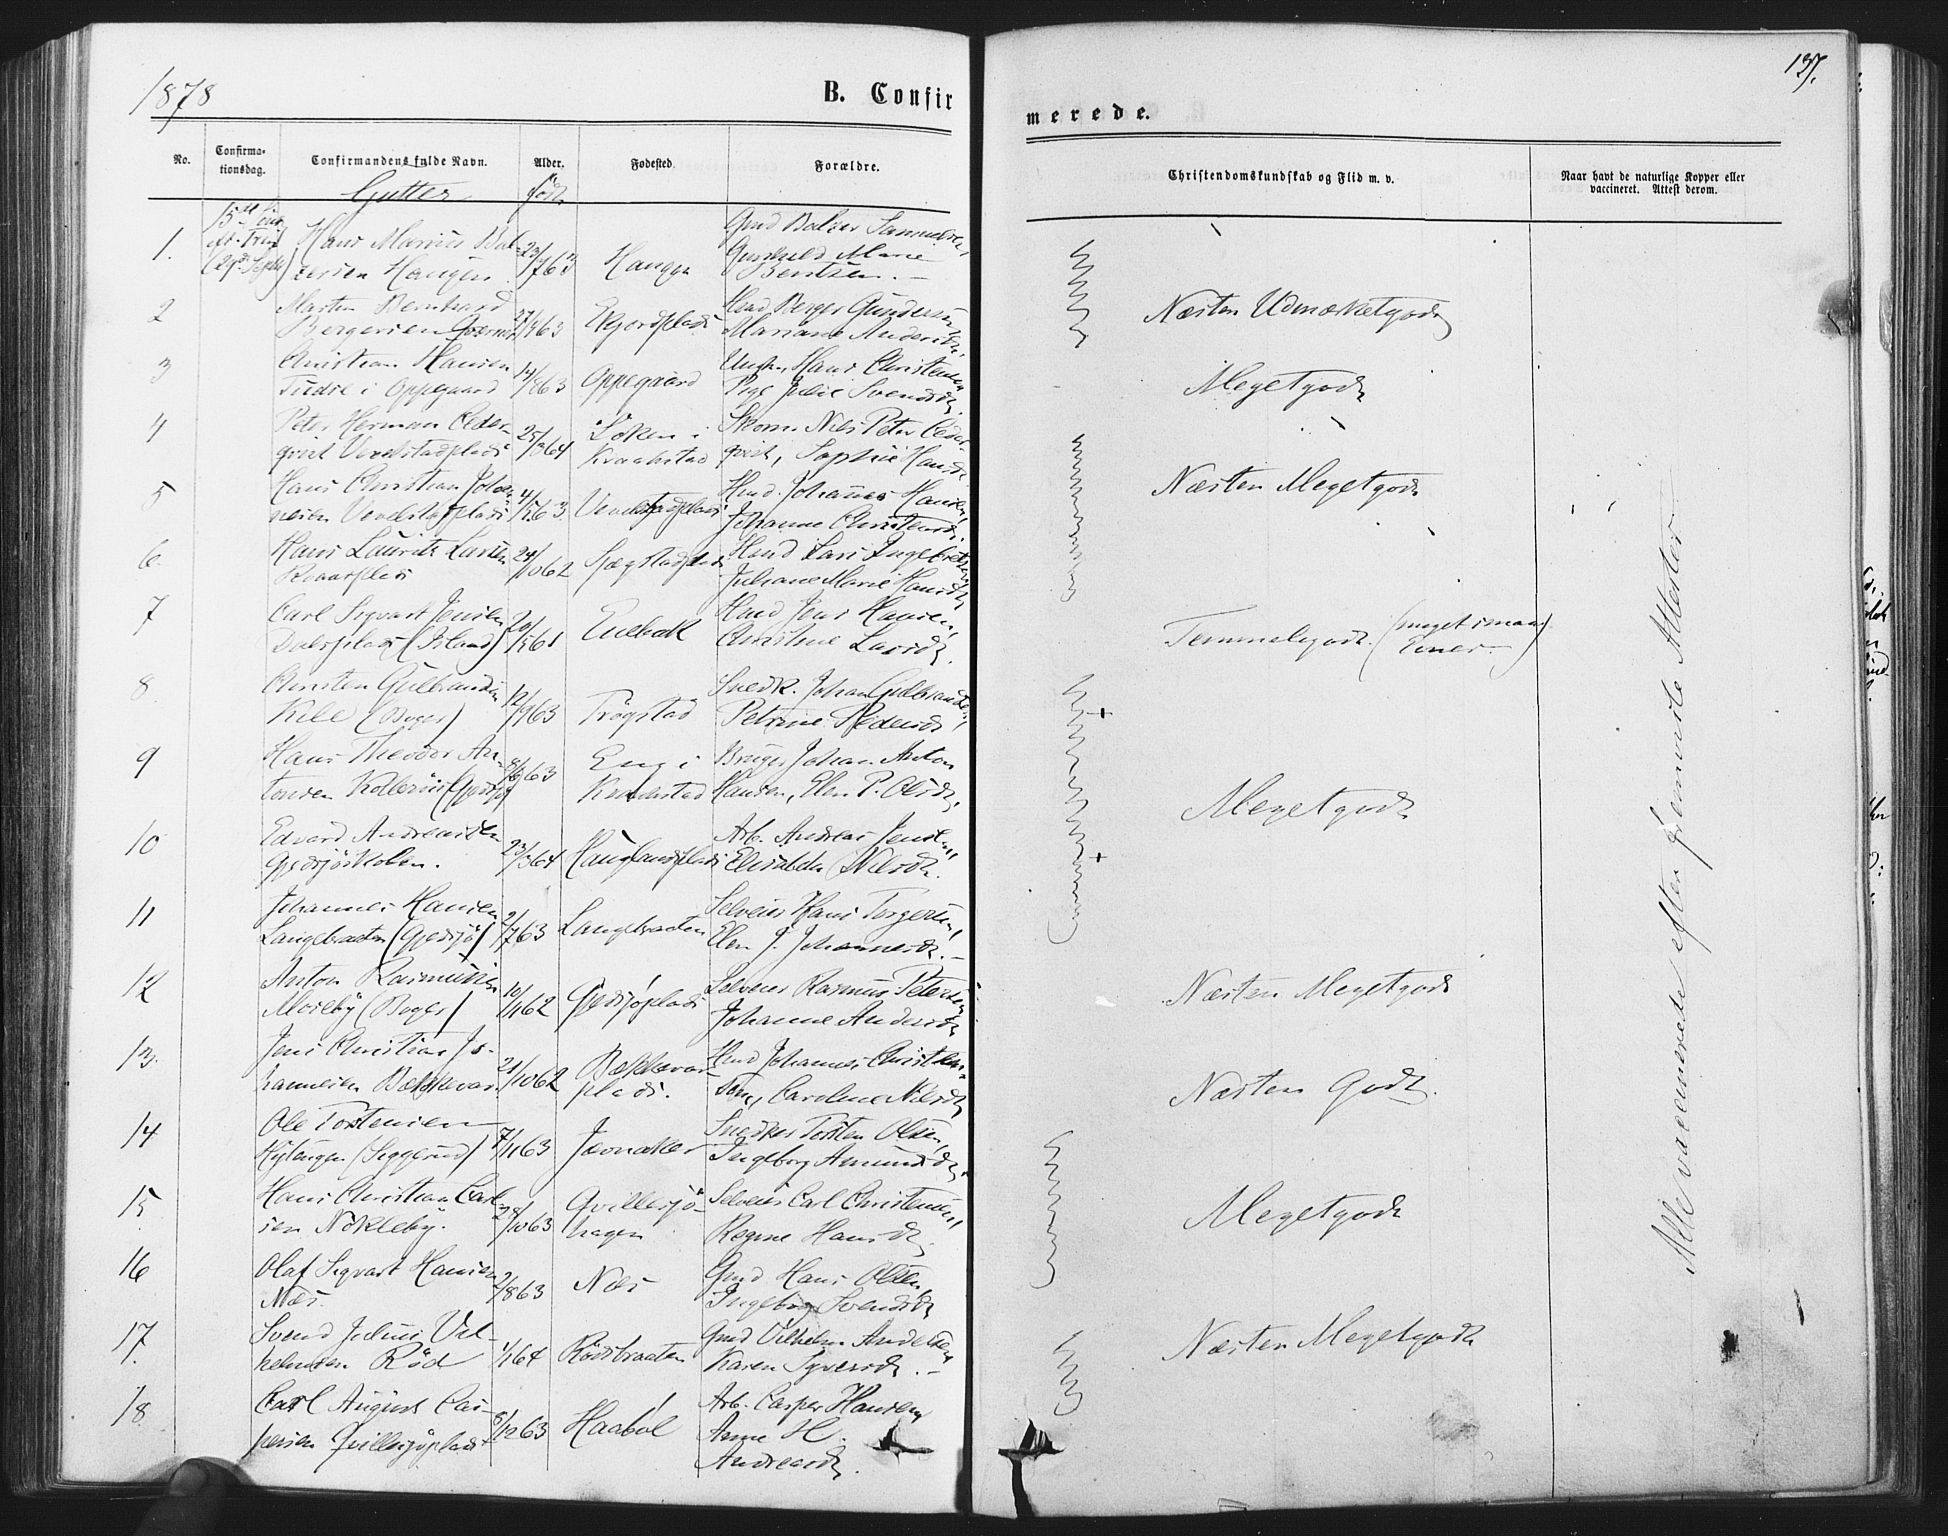 1878
B. Confir
merede.
137.
No.
Confirma-
tionsdag.
Confirmandens fulde Navn.
Alder.
Fødested.
Forældre.
Christendomskundskab og Flid m. v.
Naar havt de naturlige Kopper eller
vaccineret. Attest derom.
Gutter
født
15de Sønd
eft. Trin
(29de Septbr)
1.
Hans Marius Bal-
zersen Haugen
23/7 63
Haugen
Gmd Balzer Samuelsen,
Gunhild Marie
Bentsen.
2
Morten Bernhard
Bergersen
63
Ekjordplads
Hmd Berger Gundersen
Mariane Andersdr.
Næsten Udmærketgodt
3
Christian Hansen
Tusse i Oppegaard
14/8 63
Oppegaard
Ungk. Hans Christensen
Pige Julie Svendsdr.
Megetgodt
4
Peter Herman Ceder-
qvist Vevelstadplads
25/3 64
Søken i
Kraakstad
Skom. Nils Peter Ceder-
qvist, Sophie Hansdr.
5
Hans Christian Johan-
nesen Vevelstadplads
4/5 63
Vevelstadplads
Hmd. Johannes Hansen,
Johanne Christensdr.
Næsten Megetgodt
6
Hans Lauritz Larsen
Kvaarplads
24/10 62
Fægstadplads
Hmd Lars Ingebretsen
Juliane Marie Hansdr.
7
Carl Sigvart Jensen
Dalsplads (Island)
20/5 61
Enebak
Hmd Jens Hansen,
Christine Larsdr.
Temmeligodt. (meget smaa
Evner.)
8.
Christen Gulbrandsen
Kile (Boger)
12/9 63
Trøgstad
Snedk. Johan Gulbrandsen,
Petrine Pedersdr
9
Hans Theodor An-
tonsen Kollerüs (Gjedsjø)
8/6 63
Eng i
Kraakstad
Bruger Johan Anton
Hansen, Elen P. Olsdr.
Megetgodt
10
Edvard Andreassen
Gjedsjøskolen.
23/3 64
Hauglandsplads
Arb. Andreas Jensen,
Elisabeth Nilsdr.
11
Johannes Hansen
Langebraaten (Gjedsjø)
2/7 63
Langebraaten
Selveier Hans Torgersen,
Elen J. Johannesdr.
12
Anton Rasmussen
Moseby (Boger)
10/11 62
Gjedsjøplads
Selveier Rasmus Petersen
Johanne Andersdr
Næsten Megetgodt
13.
Jens Christian Jo-
hannesen Bækkevar.
21/10 62
Bækkevar-
plads.
Hmd Johannes Christian-
sen, Caroline Nilsdr
Næsten Godt.
14
Ole Torstensen
Nytangen (Siggerud)
7/11 63
Jævnaker
Snedker Torsten Olsen,
Ingeborg Amundsdr.
15
Hans Christian Carl-
sen Nøkleby.
28/10 63
Qvillesjø-
hagen
Selveier Carl Christensen,
Regine Hansdr.
Megetgodt
16
Olaf Sigvart Hansen
Næs.
2/8 63
Næs
Gmd Hans Olsen,
Ingeborg Svendsdr
17.
Svend Julius Vil-
helmsen Rød
1/1 64
Rødsbraaten
Gmd Vilhelm Andersen
Karen Syversdr.
Næsten Megetgodt
18
Carl August Cas-
persen Qvillesjøplads
8/12 63
Haabøl
Arb. Casper Hansen,
Anne H.
Andreasdr.
Alle vaccinerede efter fremviste Attester